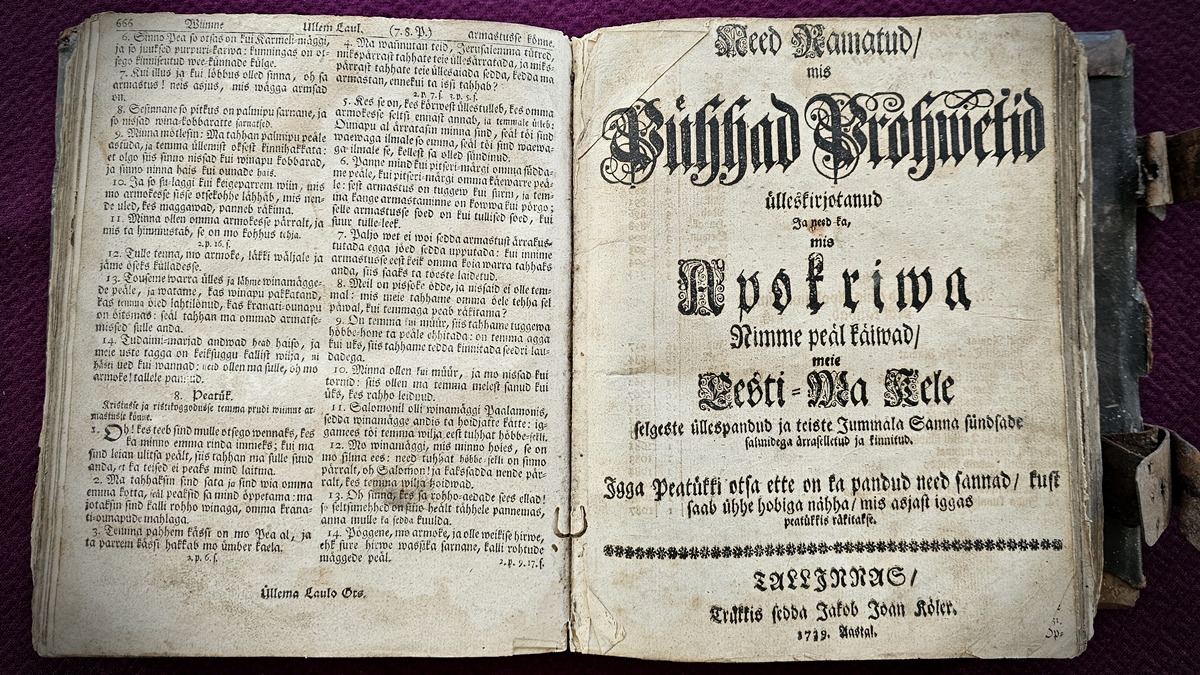 666 Wiimne Üllem Laul. (7. 8. P.) armastusse könne.
6. Sinno Pea so otsas on kui Karmeli-mäggi,
ja so juuksed purpuri-karwa: kunningas on ot-
sego kinniseutud wee-künnade külge.
7. Kui illus ja kui löbbus olled sinna, oh sa
armastus! neis asjus, mis wägga armsad
on.
8. Sesinnane so pitkus on palmipu sarnane, ja
so nissad wina-kobbaratte sarnased.
9. Minna mötlesin: Ma tahhan palmipu peäle
astuda, ja temma üllemist oksest kinnihakkata:
et olgo siis sinno nissad kui winapu kobbarad,
ja sinno ninna hais kui ounade hais.
10. Ja so su-laggi kui keigeparrem wiin, mis
mo armokesse sisse otsekohhe lähhäb, mis nen-
de uled, kes maggawad, panneb räkima.
11. Minna ollen omma armokesse pärralt, ja
mis ta himmustab, se on mo kohhus tehja.
2. p. 16. s.
12. Tulle tenna, mo armoke, läkki wäljale ja
jäme öseks külladesse.
13. Touseme warra ülles ja lähme winamägge-
de peäle, ja watame, kas winapu pakkatand,
kas temma öied lahtilönud, kas kranati-ounapu
on öitsmas: seäl tahhan ma ommad armatse-
missed sulle anda.
14. Tudaimi-marjad andwad head haiso, ja
meie uste tagga on keiksuggu kallist wilja, ni
hästi ued kui wannad: neid ollen ma sulle, oh mo
armoke! tallele pannud.
8. Peatük.
Kristusse ja ristikoggodusse temma prudi wiimne ar-
mastusse könne.
1. Oh! kes teeb sind mulle otsego wennaks, kes
ka minno emma rinda immeks; kui ma
sind leian ulitsa peält, siis tahhan ma sulle suud
anda, et ka teised ei peaks mind laitma.
2. Ma tahhaksin sind sata ja sind wia omma
emma kotta, seäl peaksid sa mind öppetama: ma
jotaksin sind kalli rohho winaga, omma krana-
ti-ounapude mahlaga.
3. Temma pahhem kässi on mo Pea al, ja
ta parrem kässi hakkab mo ümber kaela.
2. p. 6. s.
4. Ma wannutan teid, Jerusalemma tütred,
mikspärrast tahhate teie üllesärratada, ja miks-
pärrast tahhate teie üllesaiada sedda, kedda ma
armastan, ennekui ta issi tahhab?
2. p. 7. s. 3. p. 5. s.
5. Kes se on, kes körwest üllestulleb, kes omma
armokesse seltsi ennast annab, ja temmale ütleb:
Ounapu al ärratasin minna sind, seäl töi sind
waewaga ilmale so emma, seäl töi sind waewa-
ga ilmale se, kellest sa olled sündinud.
6. Panne mind kui pitseri-märgi omma südda-
me peäle, kui pitseri-märgi omma käewarre peä-
le: sest armastus on tuggew kui surm, ja tem-
ma kange armastaminne on kowwa kui pörgo;
selle armastusse soed on kui tullised soed, kui
suur tulle-leek.
7. Paljo wet ei woi sedda armastust ärrakus-
tutada egga jöed sedda upputada: kui innime
armastusse eest keik omma koia warra tahhaks
anda, siis saaks ta toeste laidetud.
8. Meil on pissoke ödde, ja nissaid ei olle tem-
mal: mis meie tahhame omma öele tehha sel
päwal, kui temmaga peab räkitama?
9. On temma kui müür, siis tahhame tuggewa
höbbe-hone ta peäle ehhitada: on temma agga
kui uks, siis tahhame tedda kinnitada seedri lau-
dadega.
10. Minna ollen kui müür, ja mo nissad kui
tornid: siis ollen ma temma melest sanud kui
üks, kes rahho leidnud.
11. Salomonil olli winamäggi Paalamonis,
sedda winamägge andis ta hoidjatte kätte: ig-
gamees töi temma wilja eest tuhhat höbbe-selli.
12. Mo winamäggi, mis minno hoies, se on
mo silma ees: need tuhhat höbbe-selli on sinno
pärralt, oh Salomon! ja kakssadda nende pär-
ralt, kes temma wilja hoidwad.
13. Oh sinna, kes sa rohho-aedade sees ellad!
so seltsimehhed on sinno heält tähhele pannemas,
anna mulle ka sedda kuulda.
14. Pöggene, mo armoke, ja olle weikise hirwe,
ehk sure hirwe wassika sarnane, kalli rohtude
mäggede peäl.
2. p. 9. 17. s.
Üllema Laulo Ots.
Need Ramatud/
mis
Pühhad Prohwetid
ülleskirjotanud
Ja need-ka,
mis
Apokriwa
Nimme peäl käiwad/
meie
Eesti-Ma Kele
selgeste üllespandud ja teiste Jummala Sanna sündsade
salmidega ärraselletud ja kinnitud.
Igga Peatükki otsa ette on ka pandud need sannad/ kust
saab ühhe hobiga nähha/ mis asjast iggas
peatükkis räkitakse.
TALLINNAS/
Trükkis sedda Jakob Joan Köler.
1739. Aastal.